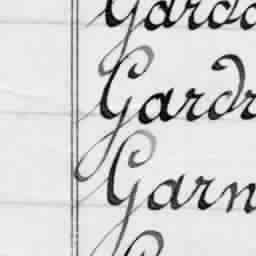 Gardo
Gardr
Garn